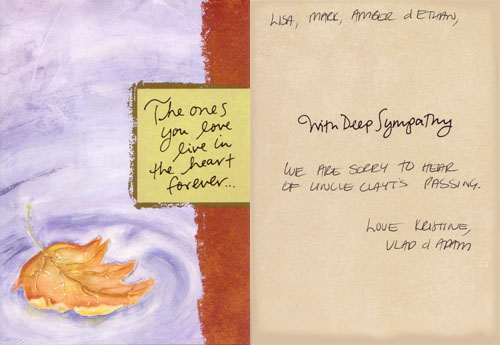 The ones
you love
live in
the heart
forever...
LISA, MARK, AMBER & ETHAN,
With Deep Sympathy
WE ARE SORRY TO HEAR
OF UNCLE CLAYT'S PASSING.
LOVE KRISTINE,
VLAD & ADAM